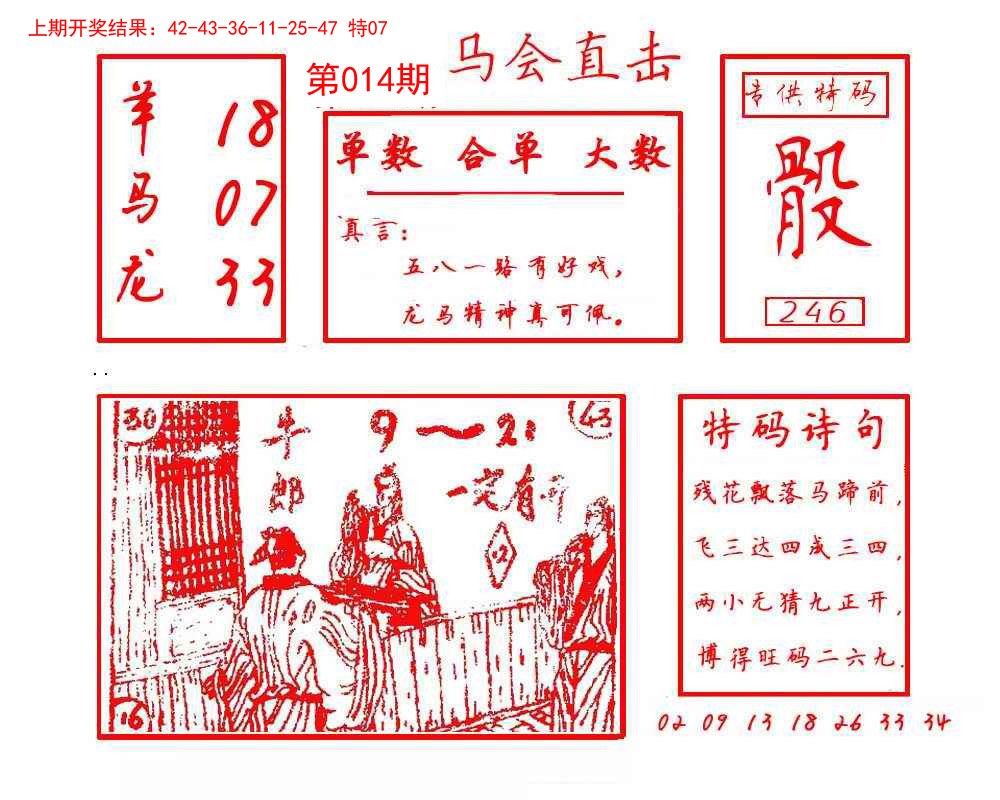 上期开奖结果: 42-43-36-11-25-47 特07
第014期
马会直击
羊 18
马 07
龙 33
单数 合单 大数
真言:
五八一路有好戏,
龙马精神真可佩。
专供特码
骰
246
30
牛郎
9～2:
43
一定有
16
特码诗句
残花飘落马蹄前,
飞三达四成三四,
两小无猜九正开,
博得旺码二六九.
02 09 13 18 26 33 34